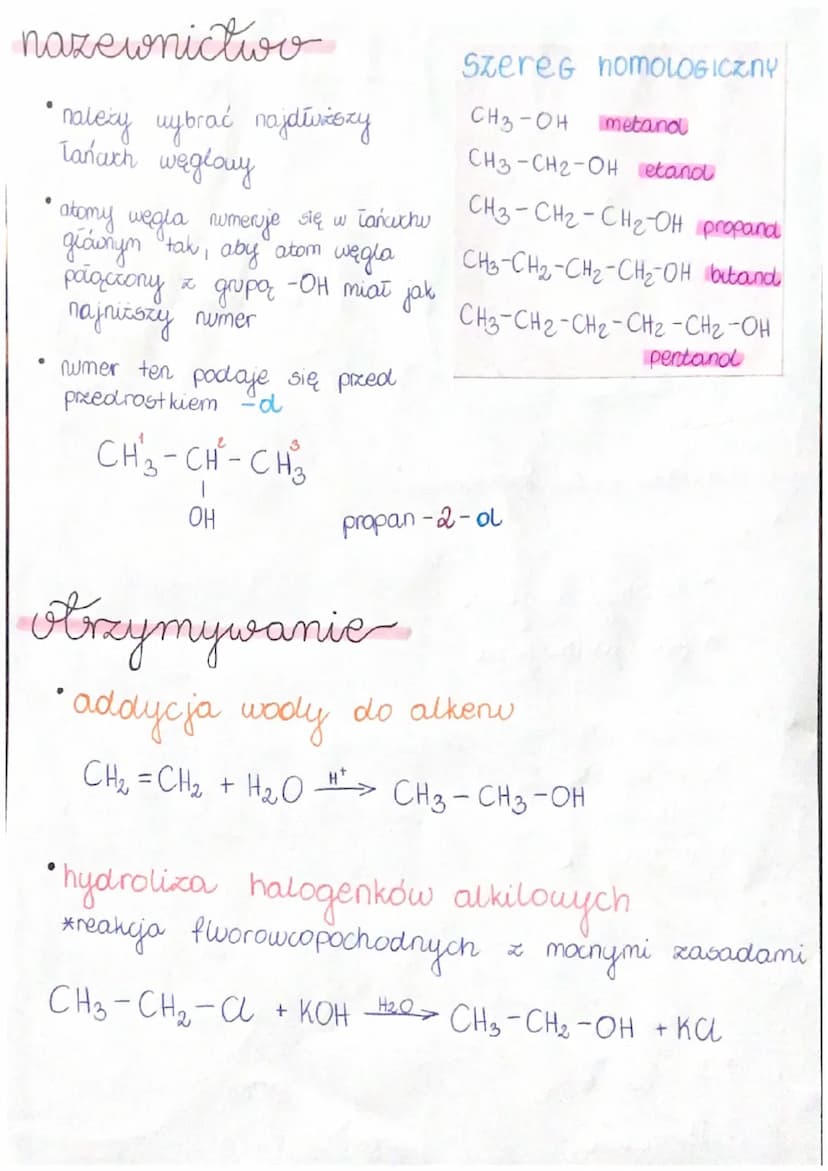 nazewnictwo
• należy wybrać najdłuższy
łańcuch węglowy
• atomy węgla numeruje się w łańcuchu
głównym tak, aby atom węgla
połączony z grupą -OH miał jak
najniższy numer
• numer ten podaje się przed
przedrostkiem -ol
1 2 3
CH3 - CH - CH3
|
OH
propan - 2 - ol
szereg homologiczny
CH3 - OH metanol
CH3 - CH2 - OH etanol
CH3 - CH2 - CH2 - OH propanol
CH3 - CH2 - CH2 - CH2 - OH butanol
CH3 - CH2 - CH2 - CH2 - CH2 - OH
pentanol
otrzymywanie
• addycja wody do alkenu
CH2 = CH2 + H2O H+ → CH3 - CH3 - OH
• hydroliza halogenków alkilowych
*reakcja fluorowcopochodnych z mocnymi zasadami
CH3 - CH2 - Cl + KOH H2O → CH3 - CH2 - OH + KCl